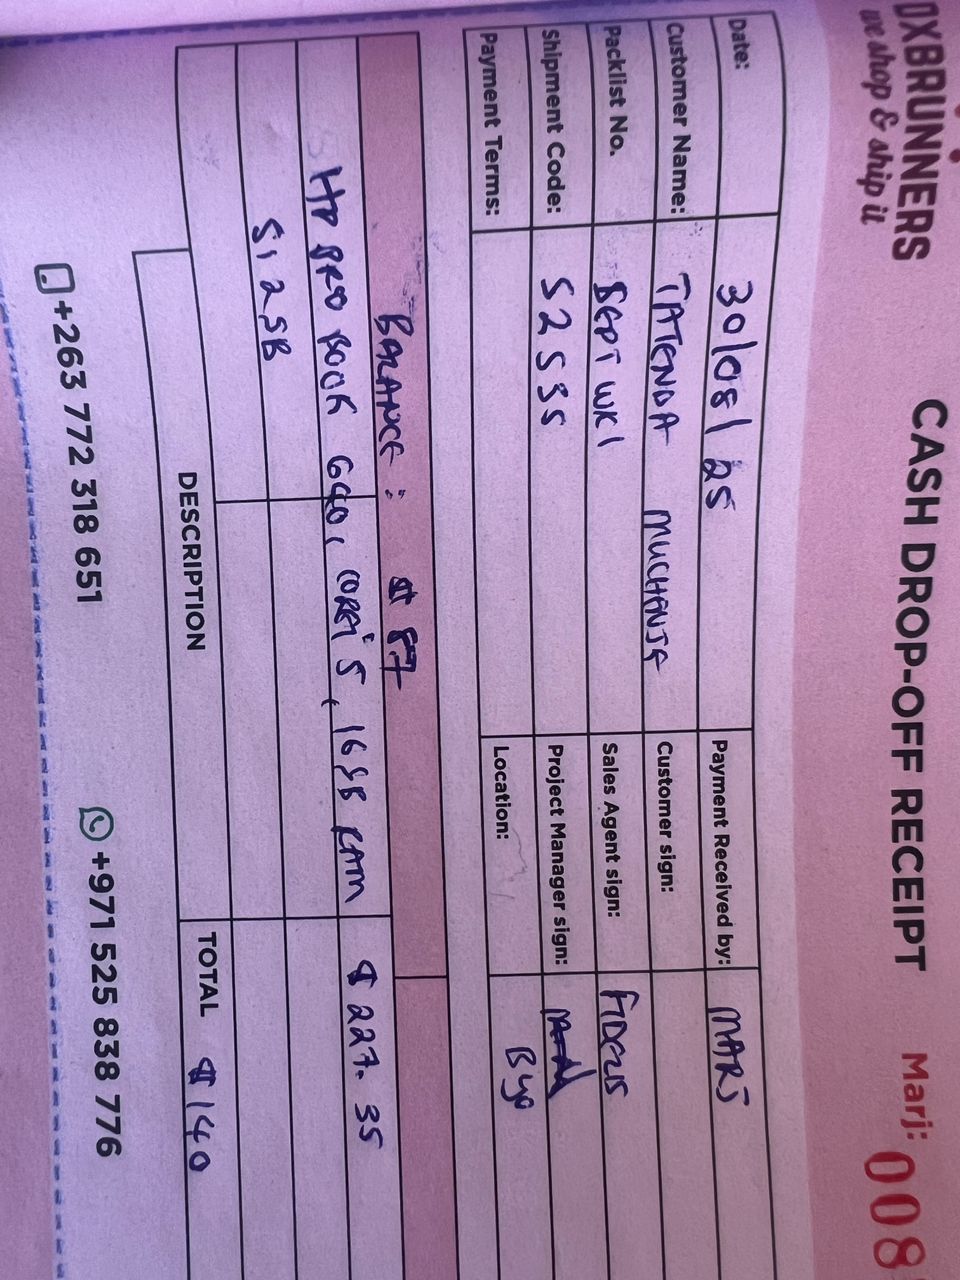 DXBRUNNERS
we shop & ship it
CASH DROP-OFF RECEIPT
Marj: 008
Date: 30/08/25 Payment Received by: MARJ
Customer Name: TATENDA MUCHANJA Customer sign:
Packlist No. SEPT WK1 Sales Agent sign: FIDELIS
Shipment Code: S2535 Project Manager sign:
Payment Terms: Location: Byo
BALANCE: $87
HP PRO BOOK 640, COREi5, 16GB RAM $227.35
512SB
DESCRIPTION TOTAL $140
+263 772 318 651 +971 525 838 776